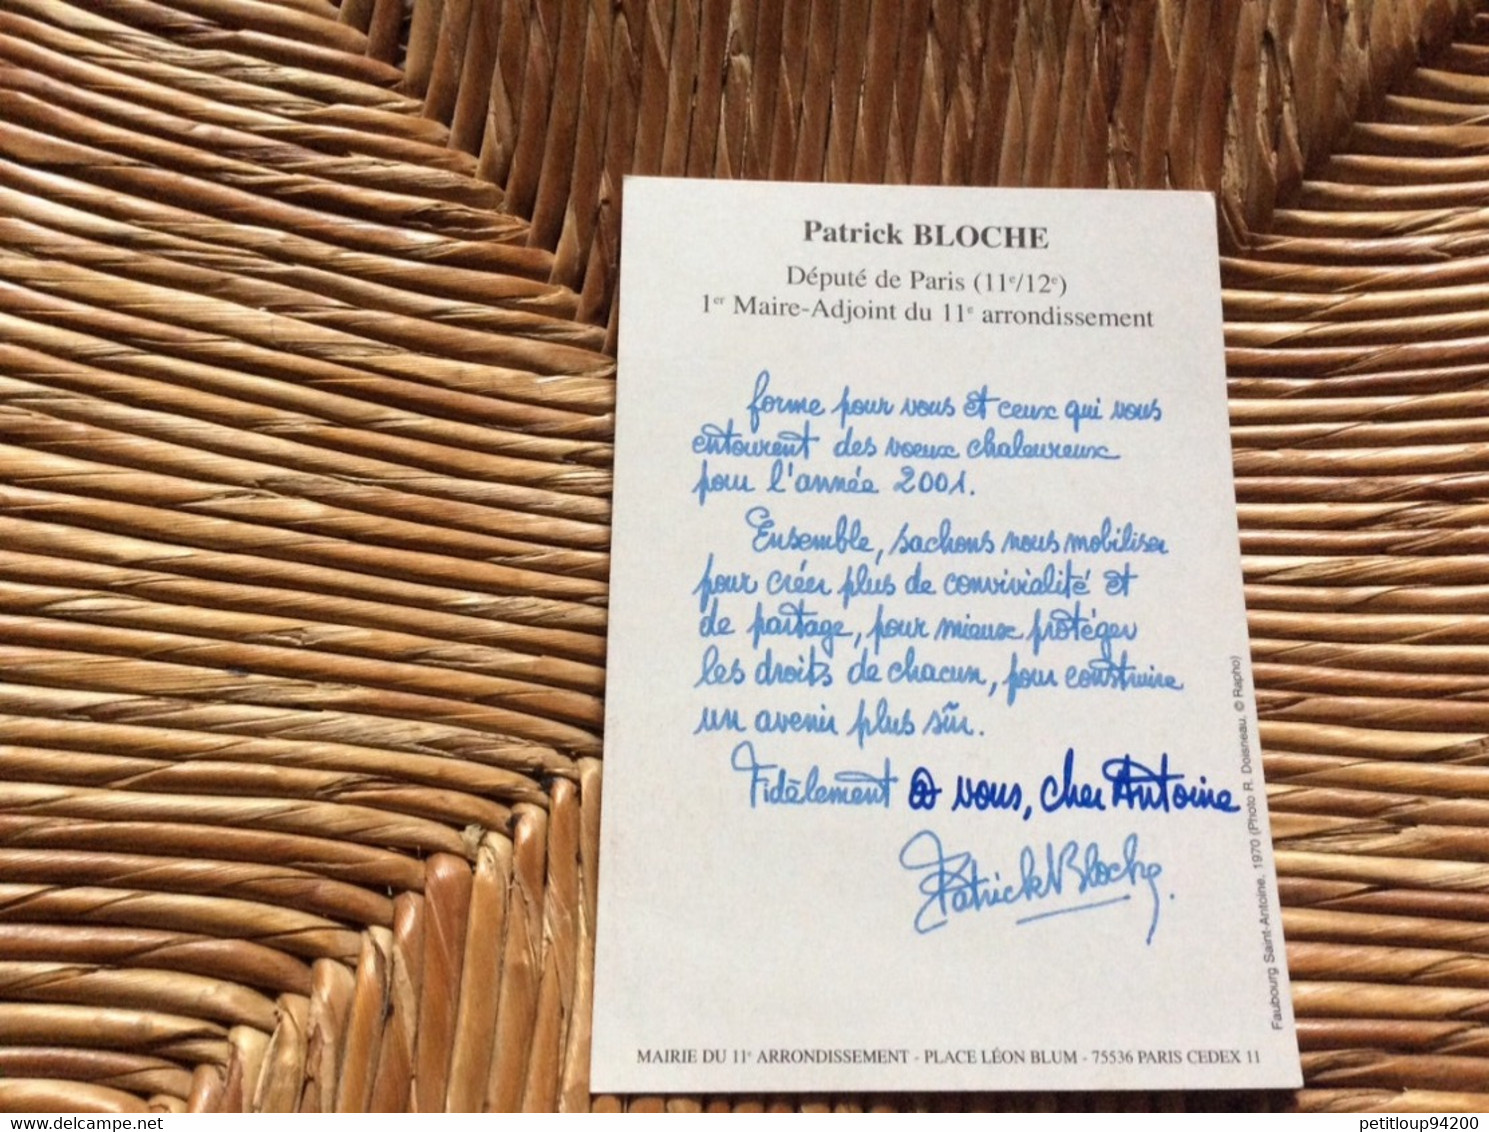 Patrick BLOCHE
Député de Paris (11e/12e)
1er Maire-Adjoint du 11e arrondissement
forme pour vous et ceux qui vous
entourent des voeux chaleureux
pour l'année 2001.
Ensemble, sachons nous mobiliser
pour créer plus de convivialité et
de partage, pour mieux protéger
les droits de chacun, pour construire
un avenir plus sûr.
Fidèlement à vous, cher Antoine
Patrick Bloche.
Faubourg Saint-Antoine, 1970 (Photo R. Doisneau. © Rapho)
MAIRIE DU 11e ARRONDISSEMENT - PLACE LÉON BLUM - 75536 PARIS CEDEX 11
petitloup94200